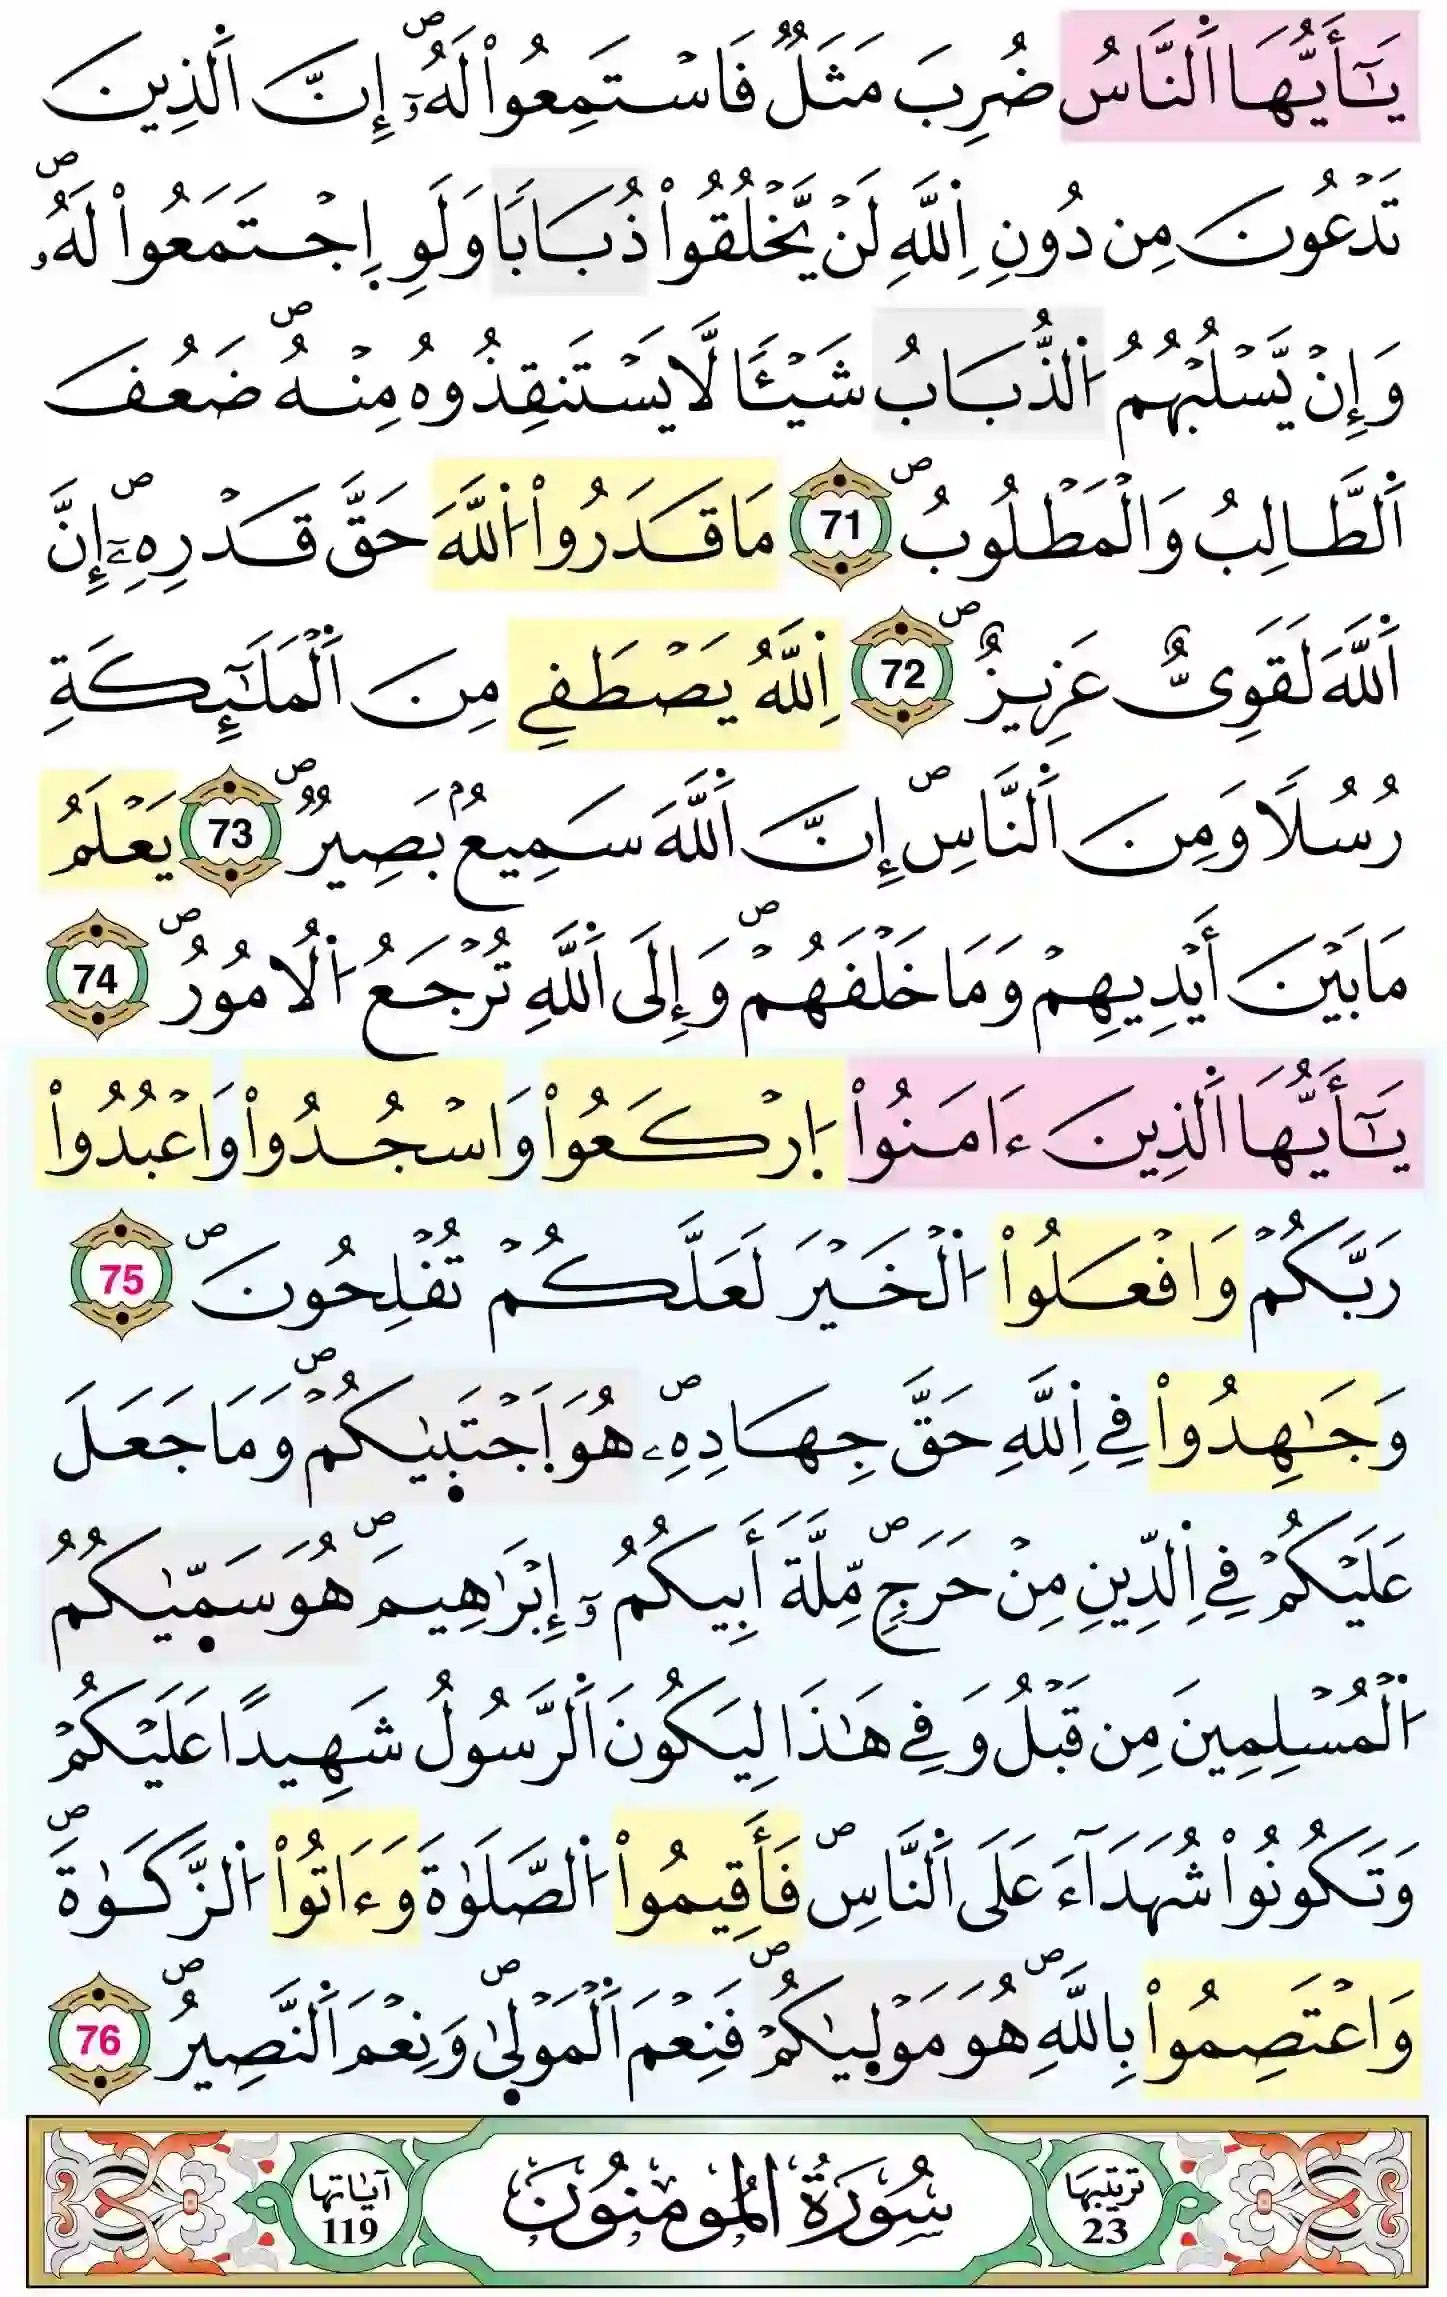 يَـٰٓأَيُّهَا اَ۬لنَّاسُ ضُرِبَ مَثَلٞ فَاسْتَمِعُواْ لَهُۥٓۖ إِنَّ اَ۬لذِينَ
تَدْعُونَ مِن دُونِ اِ۬للَّهِ لَنْ يَّخْلُقُواْ ذُبَابًا وَلَوِ اِ۪جْتَمَعُواْ لَهُۥۖ
وَإِنْ يَّسْلُبْهُمُ اُ۬لذُّبَابُ شَيْـًٔا لَّا يَسْتَنقِذُوهُ مِنْهُۖ ضَعُفَ
اَ۬لطَّالِبُ وَالْمَطْلُوبُۖ 71 مَا قَدَرُواْ اُ۬للَّهَ حَقَّ قَدْرِهِۦٓۖ إِنَّ
اَ۬للَّهَ لَقَوِيٌّ عَزِيزٌۖ 72 اِ۬للَّهُ يَصْطَفِے مِنَ اَ۬لْمَلَـٰٓئِكَةِ
رُسُلًا وَمِنَ اَ۬لنَّاسِۖ إِنَّ اَ۬للَّهَ سَمِيعُۢ بَصِيرٞۖ 73 يَعْلَمُ
مَا بَيْنَ أَيْدِيهِمْ وَمَا خَلْفَهُمْۖ وَإِلَى اَ۬للَّهِ تُرْجَعُ اُ۬لُامُورُۖ 74
يَـٰٓأَيُّهَا اَ۬لذِينَ ءَامَنُواْ اُ۪رْكَعُواْ وَاسْجُدُواْ وَاعْبُدُواْ
رَبَّكُمْ وَافْعَلُواْ اُ۬لْخَيْرَ لَعَلَّكُمْ تُفْلِحُونَۖ 75
وَجَـٰهِدُواْ فِے اِ۬للَّهِ حَقَّ جِهَادِهِۦۖ هُوَ اَ۪جْتَبۭيٰكُمْۖ وَمَا جَعَلَ
عَلَيْكُمْ فِے اِ۬لدِّينِ مِنْ حَرَجٖۖ مِّلَّةَ أَبِيكُمُۥٓ إِبْرَٰهِيمَۖ هُوَ سَمّۭيٰكُمُ
اُ۬لْمُسْلِمِينَ مِن قَبْلُ وَفِے هَـٰذَا لِيَكُونَ اَ۬لرَّسُولُ شَهِيدًا عَلَيْكُمْ
وَتَكُونُواْ شُهَدَآءَ عَلَى اَ۬لنَّاسِۖ فَأَقِيمُواْ اُ۬لصَّلَوٰةَ وَءَاتُواْ اُ۬لزَّكَوٰةَۖ
وَاعْتَصِمُواْ بِاللَّهِۖ هُوَ مَوْلۭيٰكُمْۖ فَنِعْمَ اَ۬لْمَوْلۭيٰۖ وَنِعْمَ اَ۬لنَّصِيرُۖ 76
ترتيبها 23 سُورَةُ الْمُومِنُونَ آياتها 119